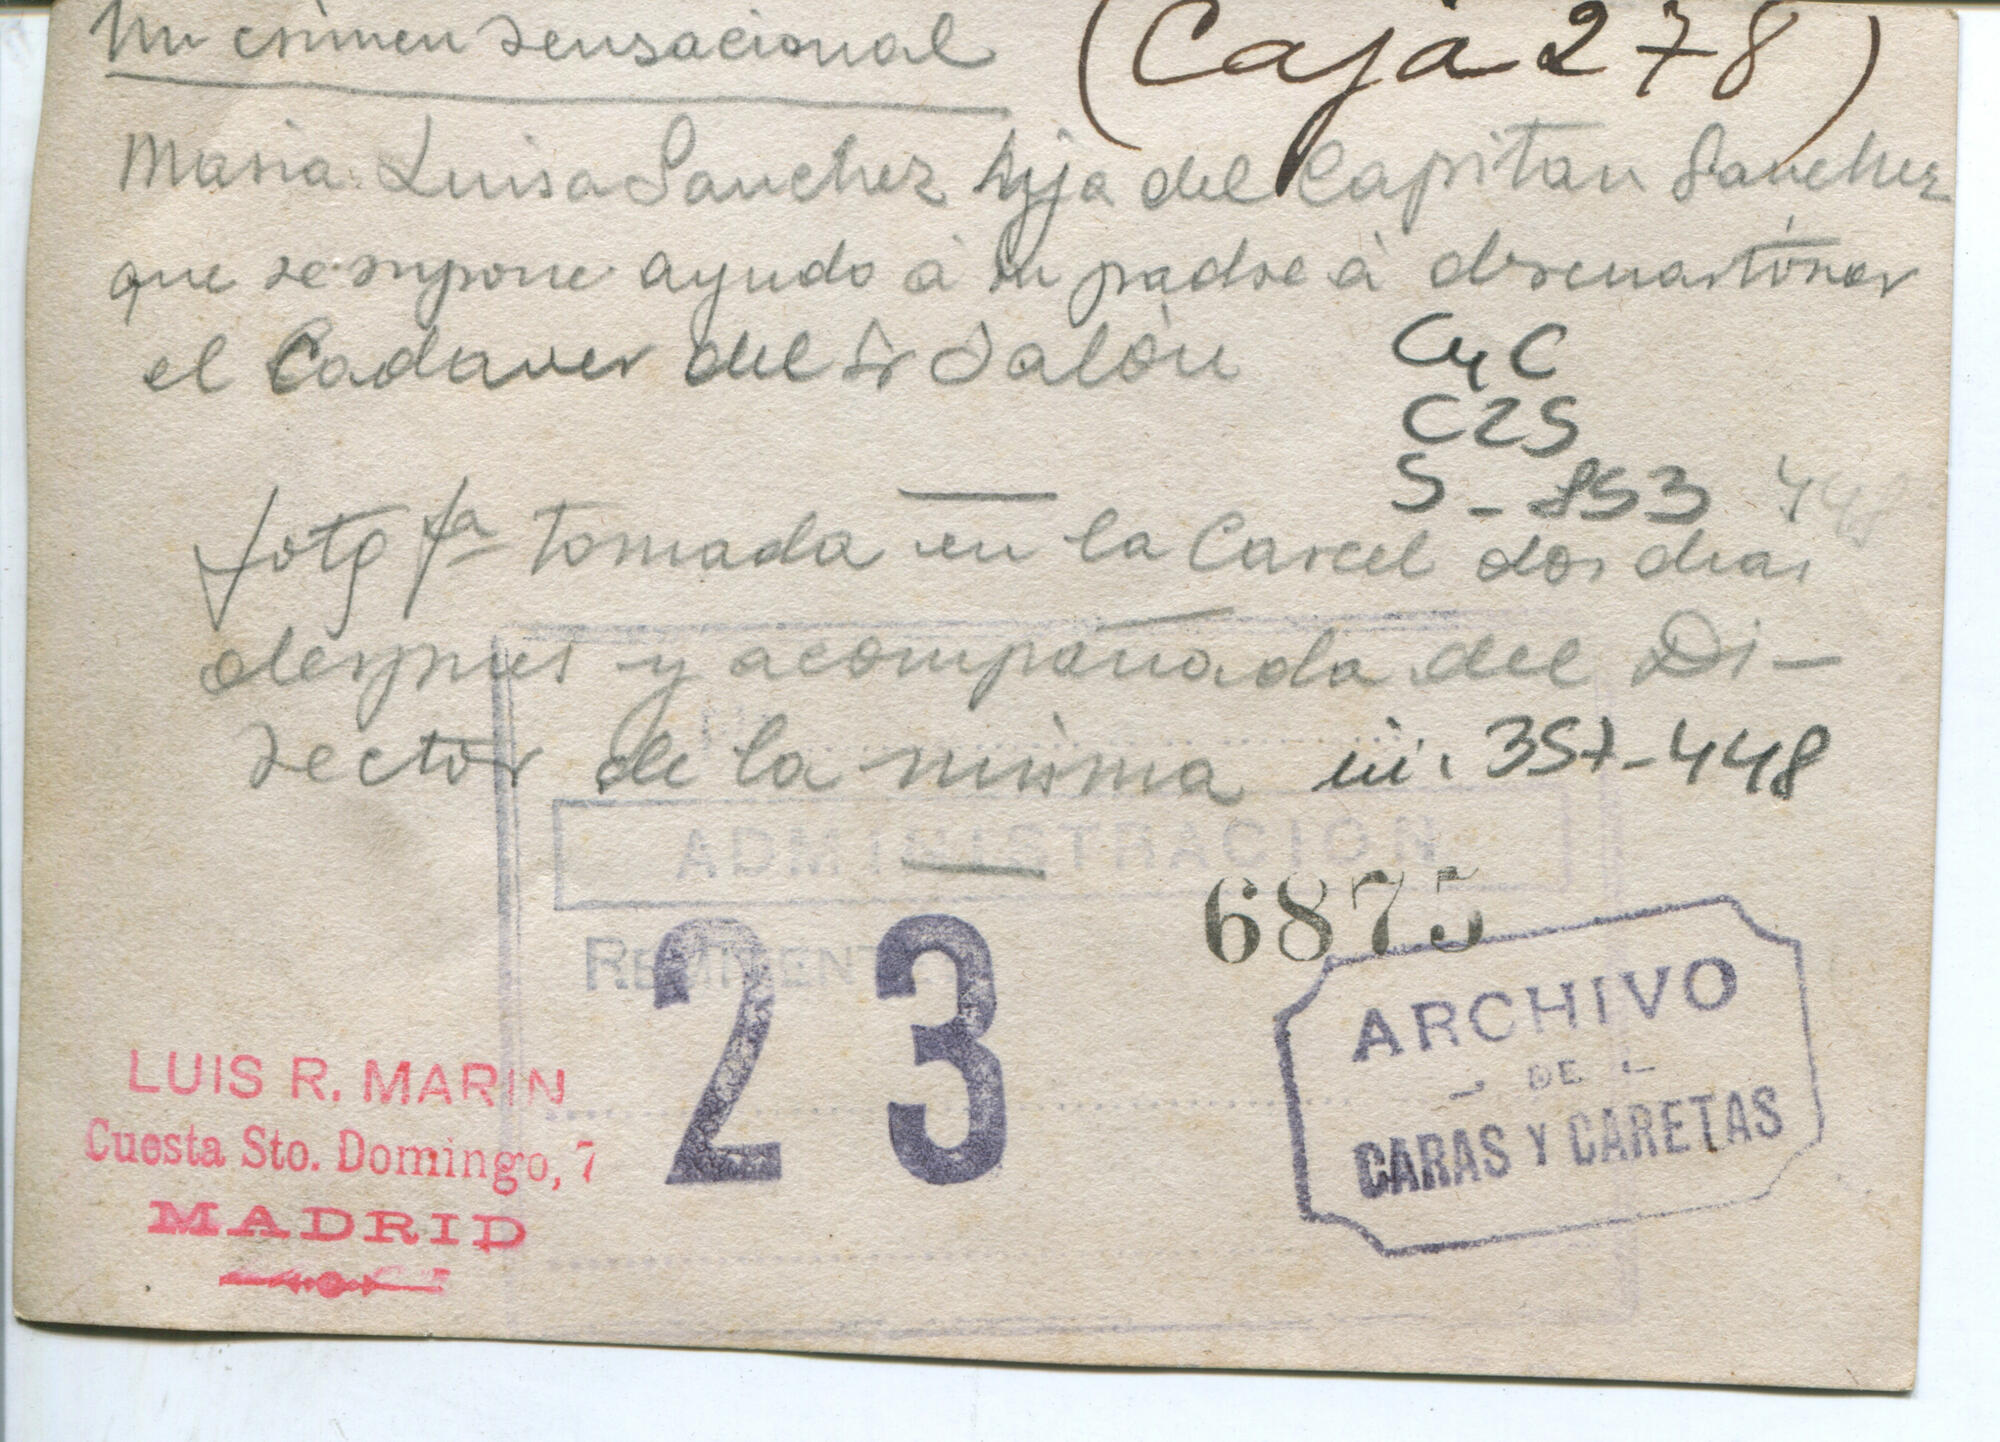 Un crimen sensacional (Caja 278)
Maria Luisa Sanchez hija del Capitan Sanchez
que se supone ayudo à su padre à descuartizar
el Cadaver del Sr Jalón
CyC
C25
S - 853 448
fotgfa tomada en la Carcel dos dias
despues y acompañada del Di-
rector de la misma 357-448
ADMINISTRACIÓN
6875
REMITENTE
23
ARCHIVO
DE
CARAS Y CARETAS
LUIS R. MARIN
Cuesta Sto. Domingo, 7
MADRID